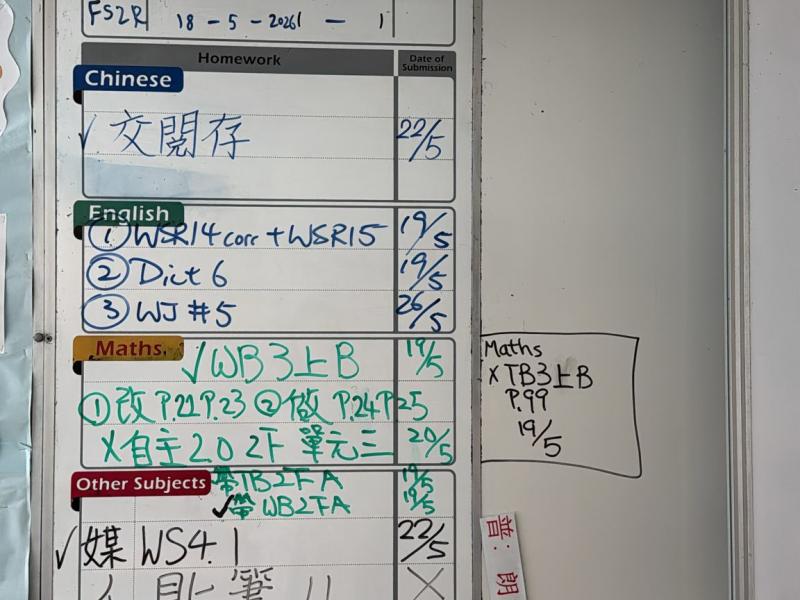 FS2R 18-5-2026 - 1
Homework Date of Submission
Chinese
✓ 交閱存 22/5
English
① WSR14 corr + WSR15 19/5
② Dict 6 19/5
③ WJ #5 26/5
Maths
✓ WB3上B 19/5
① 改 P.21 P.23 ② 做 P.24 P.25
X 自主 2.0 2下 單元三 20/5
Other Subjects
帶 TB2下A 19/5
✓ 帶 WB2下A 19/5
✓ 媒 WS4.1 22/5
X
Maths
X TB3上B
P.99
19/5
普：朗